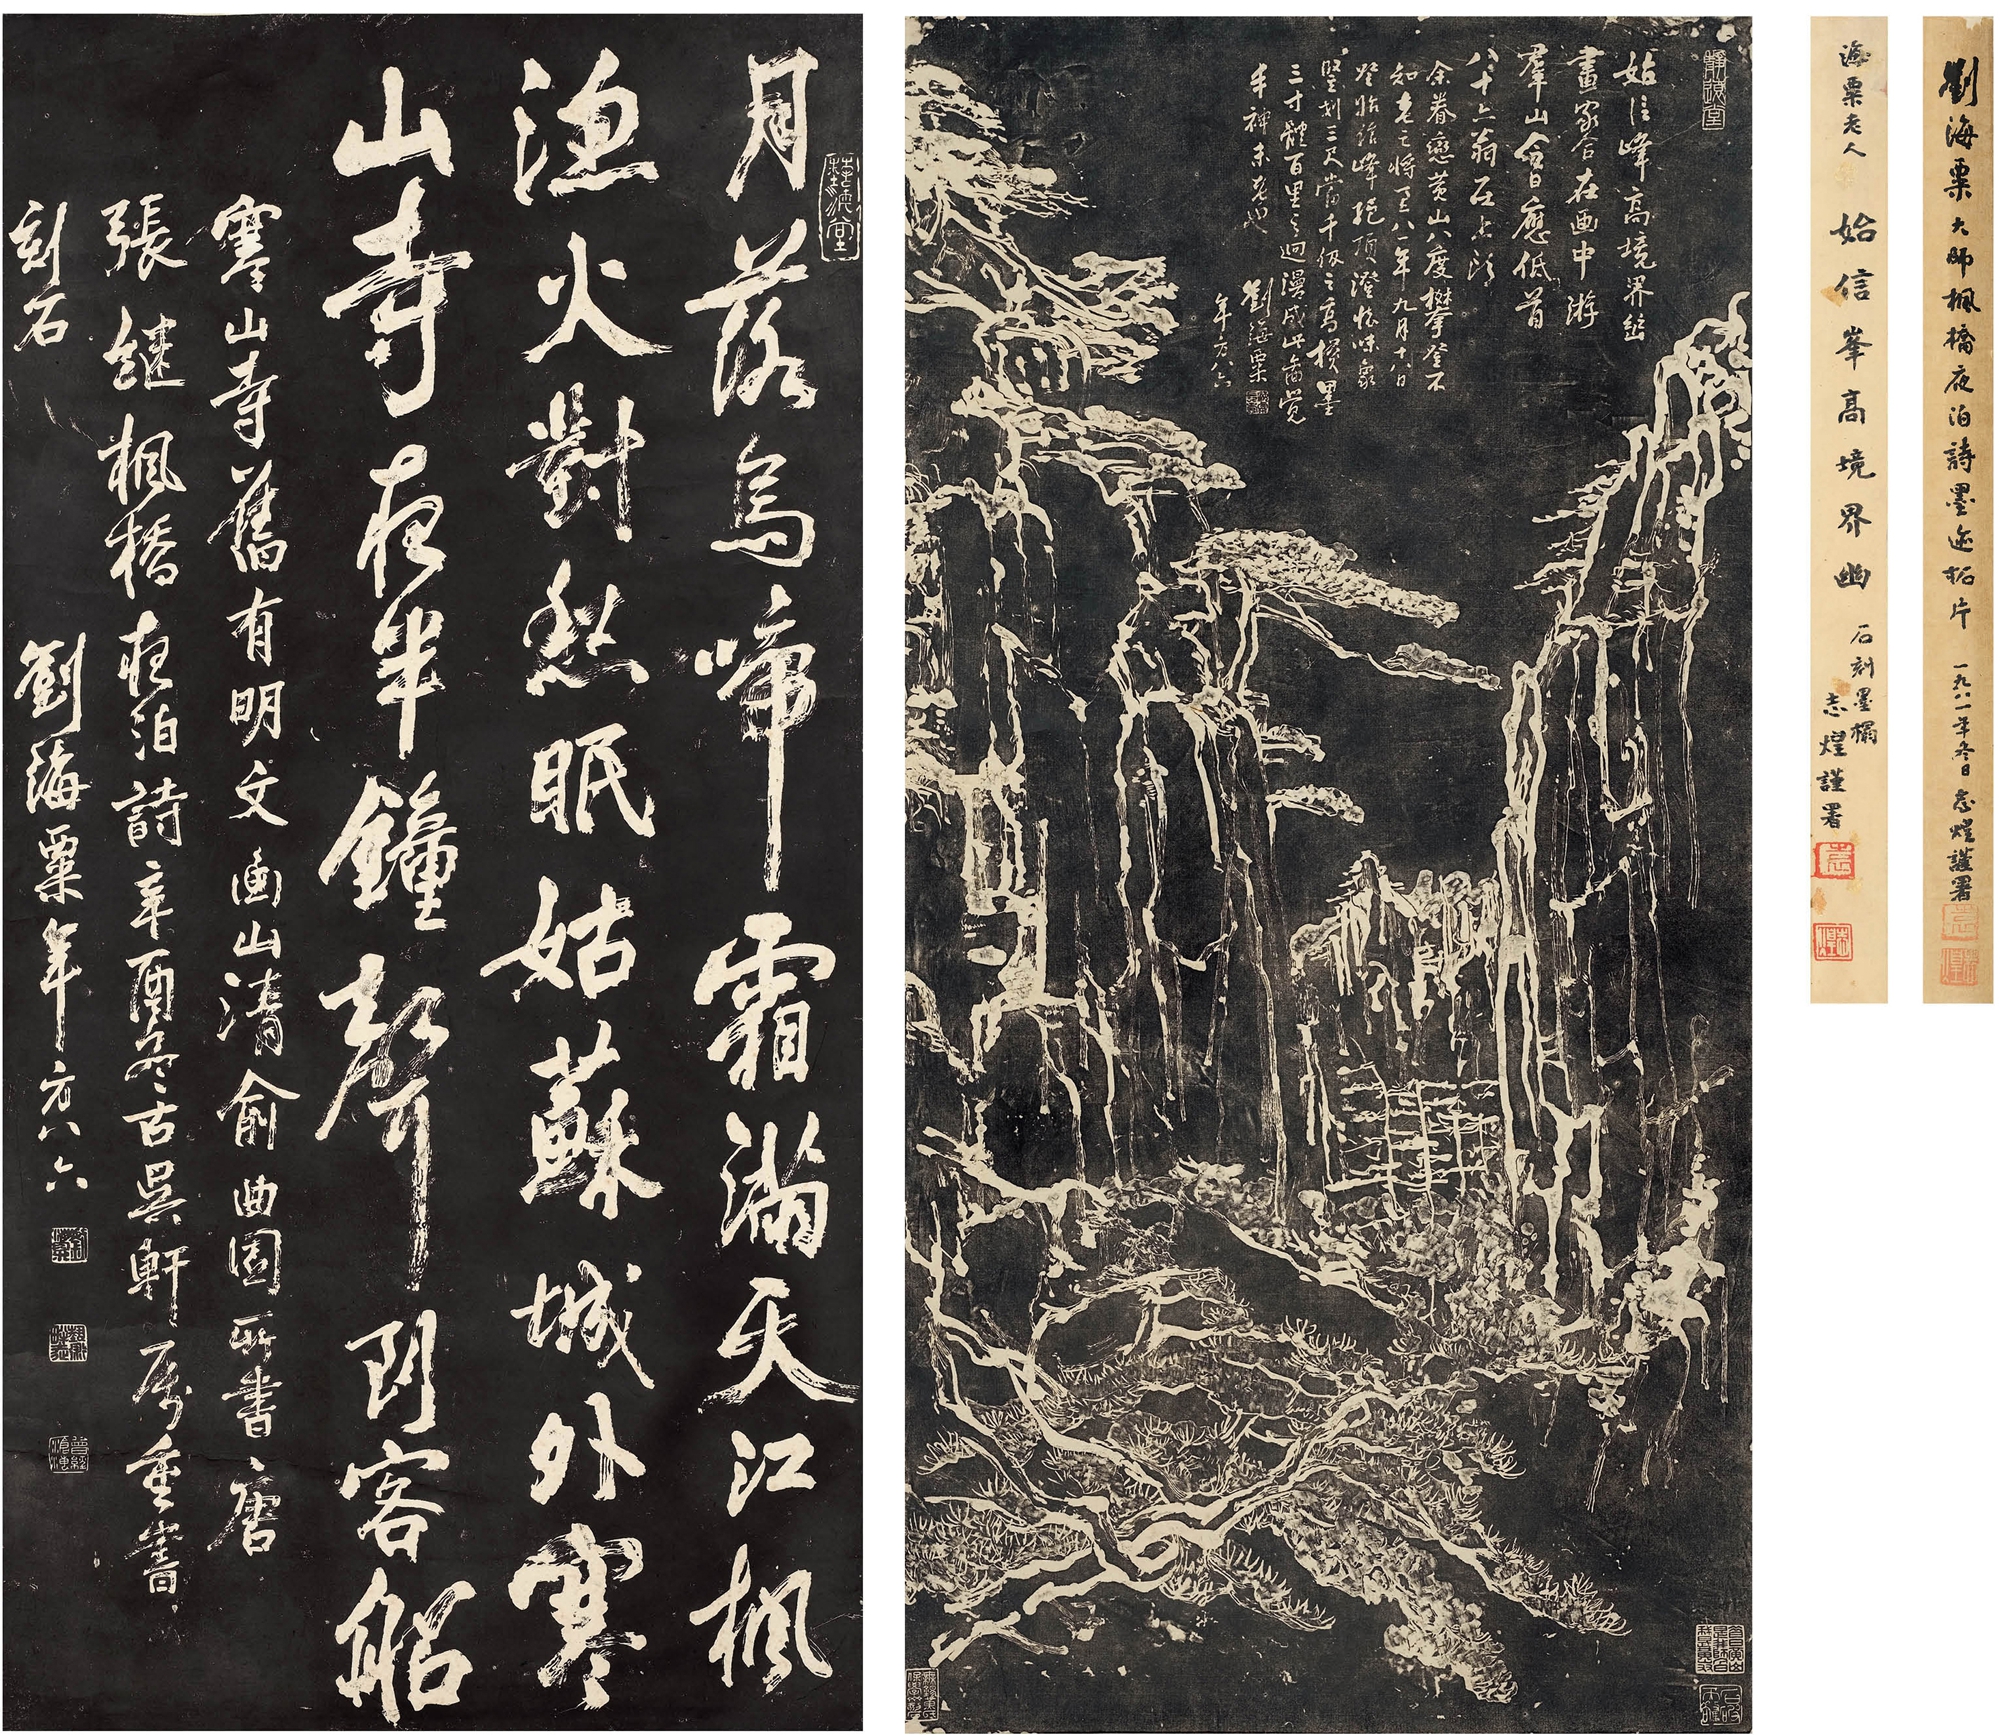 月落烏啼霜滿天江楓
漁火對愁眠姑蘇城外寒
山寺夜半鐘聲到客船
寒山寺舊有明文山清俞曲園所書唐
張繼楓橋夜泊詩辛酉冬古吳軒屬重書
刻石 劉海粟年方八六
始信峰高境界幽
畫家合在画中游
羣山今日應低首
八十六翁在上頭
余眷戀黃山八度攀登不
知老之將至八一年九月十八日
登始信峰絕頂澄懷味象
豎划三尺當千仞之高橫墨
三寸體百里之迥漫成此圖覺
手神未老也
劉海粟
年方八六
海粟老人
始信峯高境界幽
石刻墨搨
志煌謹署
劉海粟大師楓橋夜泊詩墨迹拓片
一九八一年冬日志煌謹署